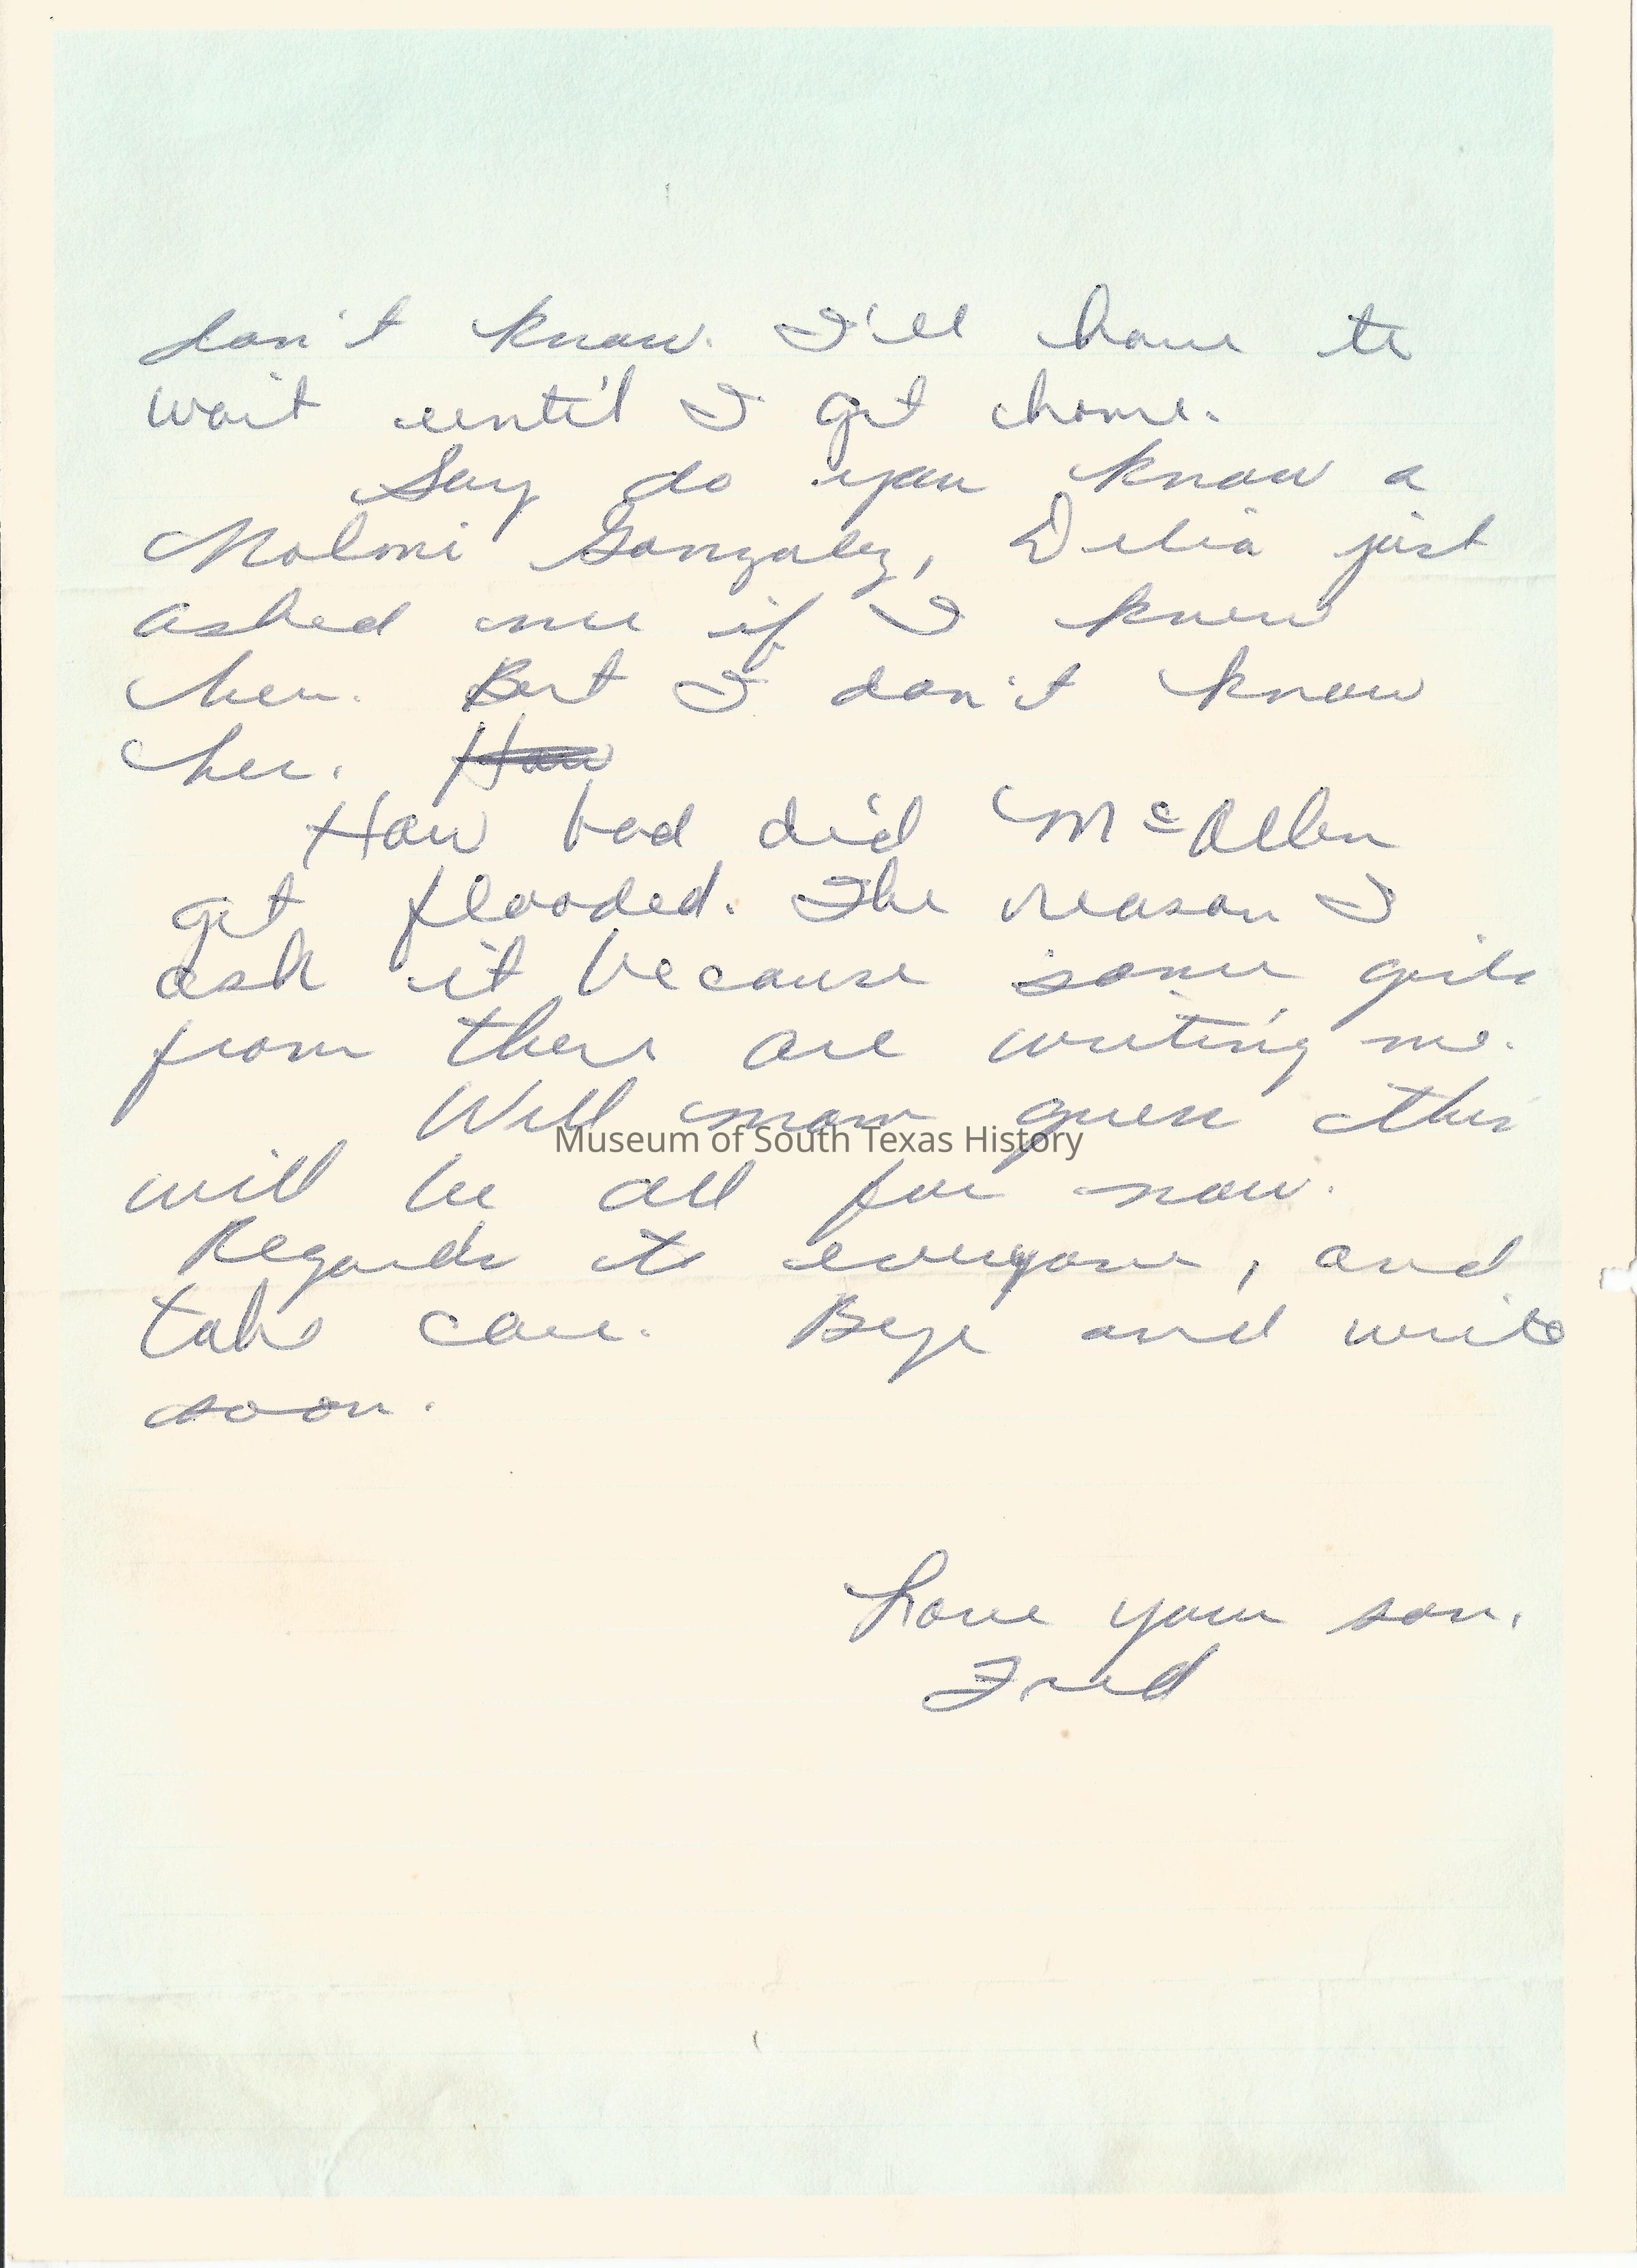 don't know. I'll have to
wait until I get home.
Say do you know a
Gonzalez, Delia just
asked me if I knew
her. But I don't know
her. How
How bad did McAllen
get flooded. The reason I
ask it because some girls
from there are writing me.
Well mom guess this
Museum of South Texas History
will be all for now.
Regards to everyone, and
take care. Bye and write
soon.
Love your son,
Fred